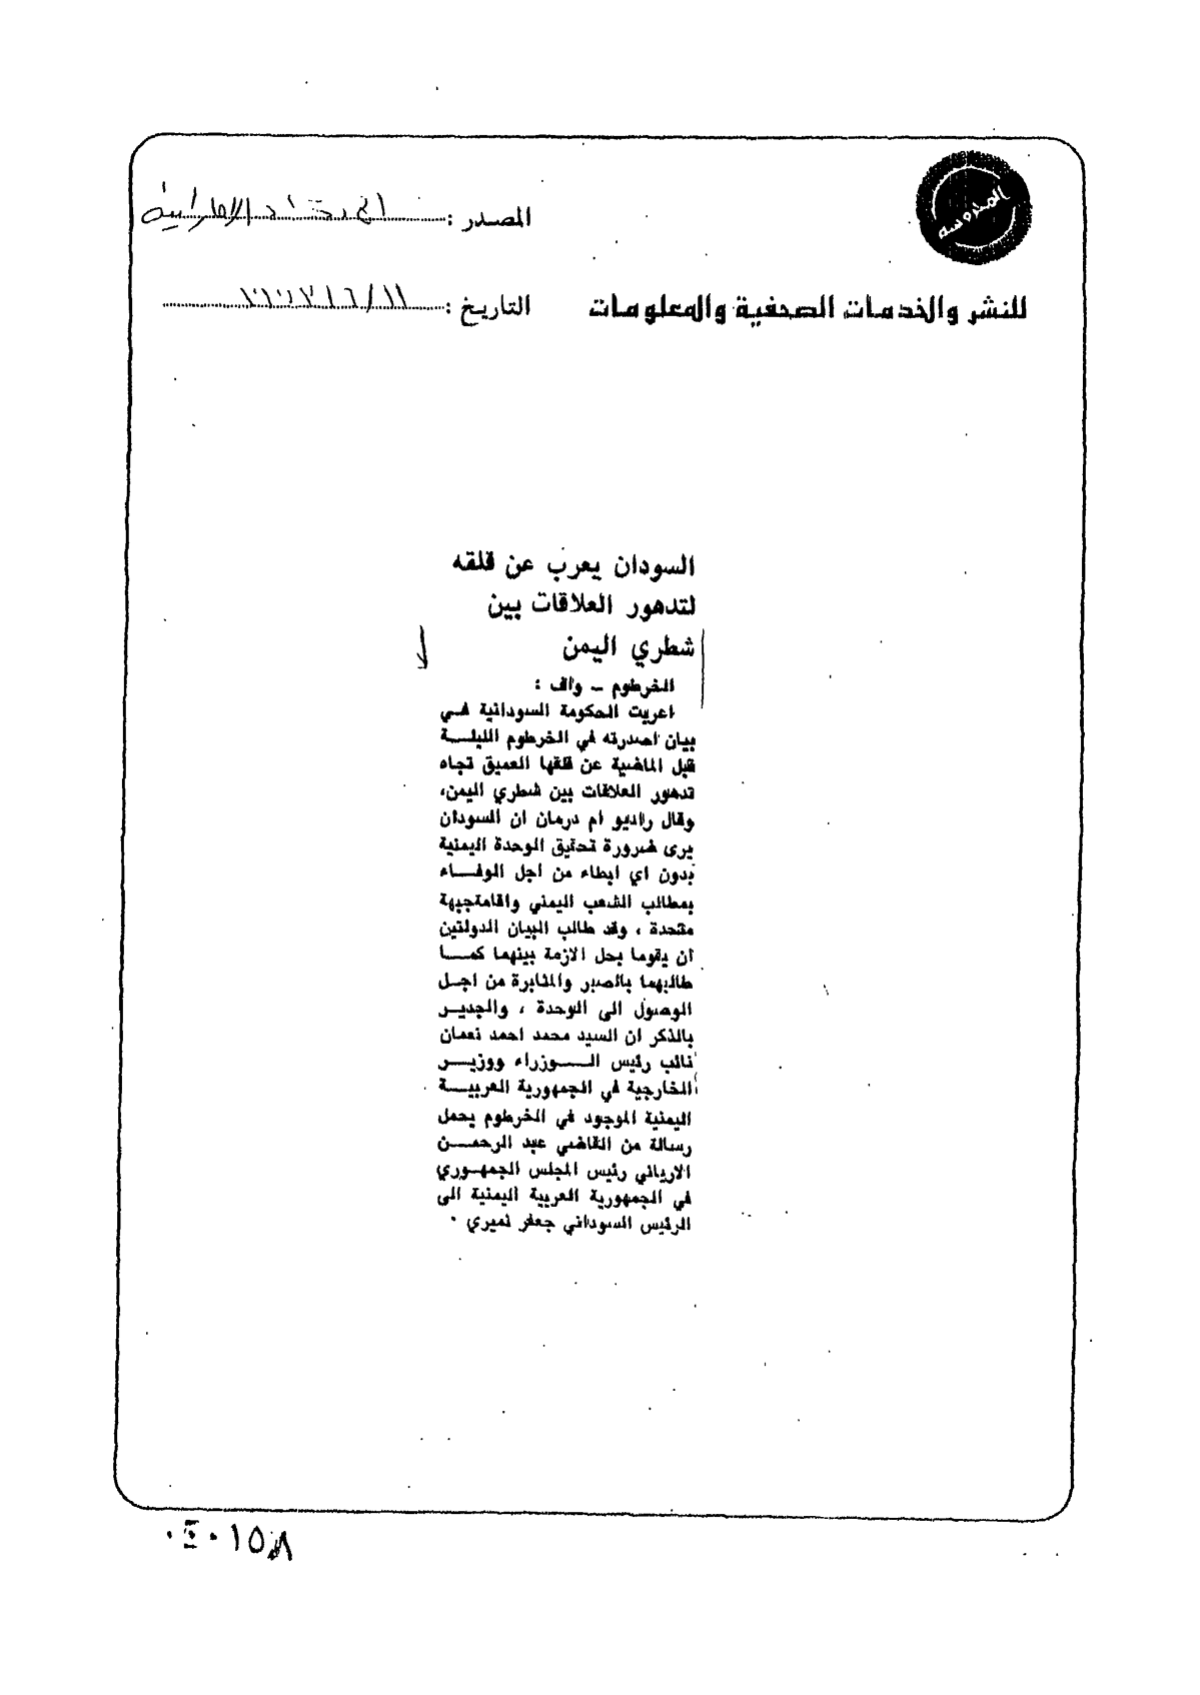 المحروسه
المصدر : الاتحاد الاماراتية
للنشر والخدمات الصحفية والمعلومات
التاريخ :
السودان يعرب عن قلقه
لتدهور العلاقات بين
شطري اليمن
الخرطوم – واف :
اعربت الحكومة السودانية فى
بيان اصدرته في الخرطوم الليلة
قبل الماضية عن قلقها العميق تجاه
تدهور العلاقات بين شطري اليمن،
وقال راديو ام درمان ان السودان
يرى ضرورة تحقيق الوحدة اليمنية
بدون اي ابطاء من اجل الوفاء
بمطالب الشعب اليمني واقامتجبهة
متحدة ، وقد طالب البيان الدولتين
ان يقوما بحل الازمة بينهما كما
طالبهما بالصبر والمثابرة من اجل
الوصول الى الوحدة ، والجدير
بالذكر ان السيد محمد احمد نعمان
نائب رئيس الوزراء ووزير
الخارجية في الجمهورية العربية
اليمنية الموجود في الخرطوم يحمل
رسالة من القاضي عبد الرحمن
الارياني رئيس المجلس الجمهوري
في الجمهورية العربية اليمنية الى
الرئيس السوداني جعفر نميري .